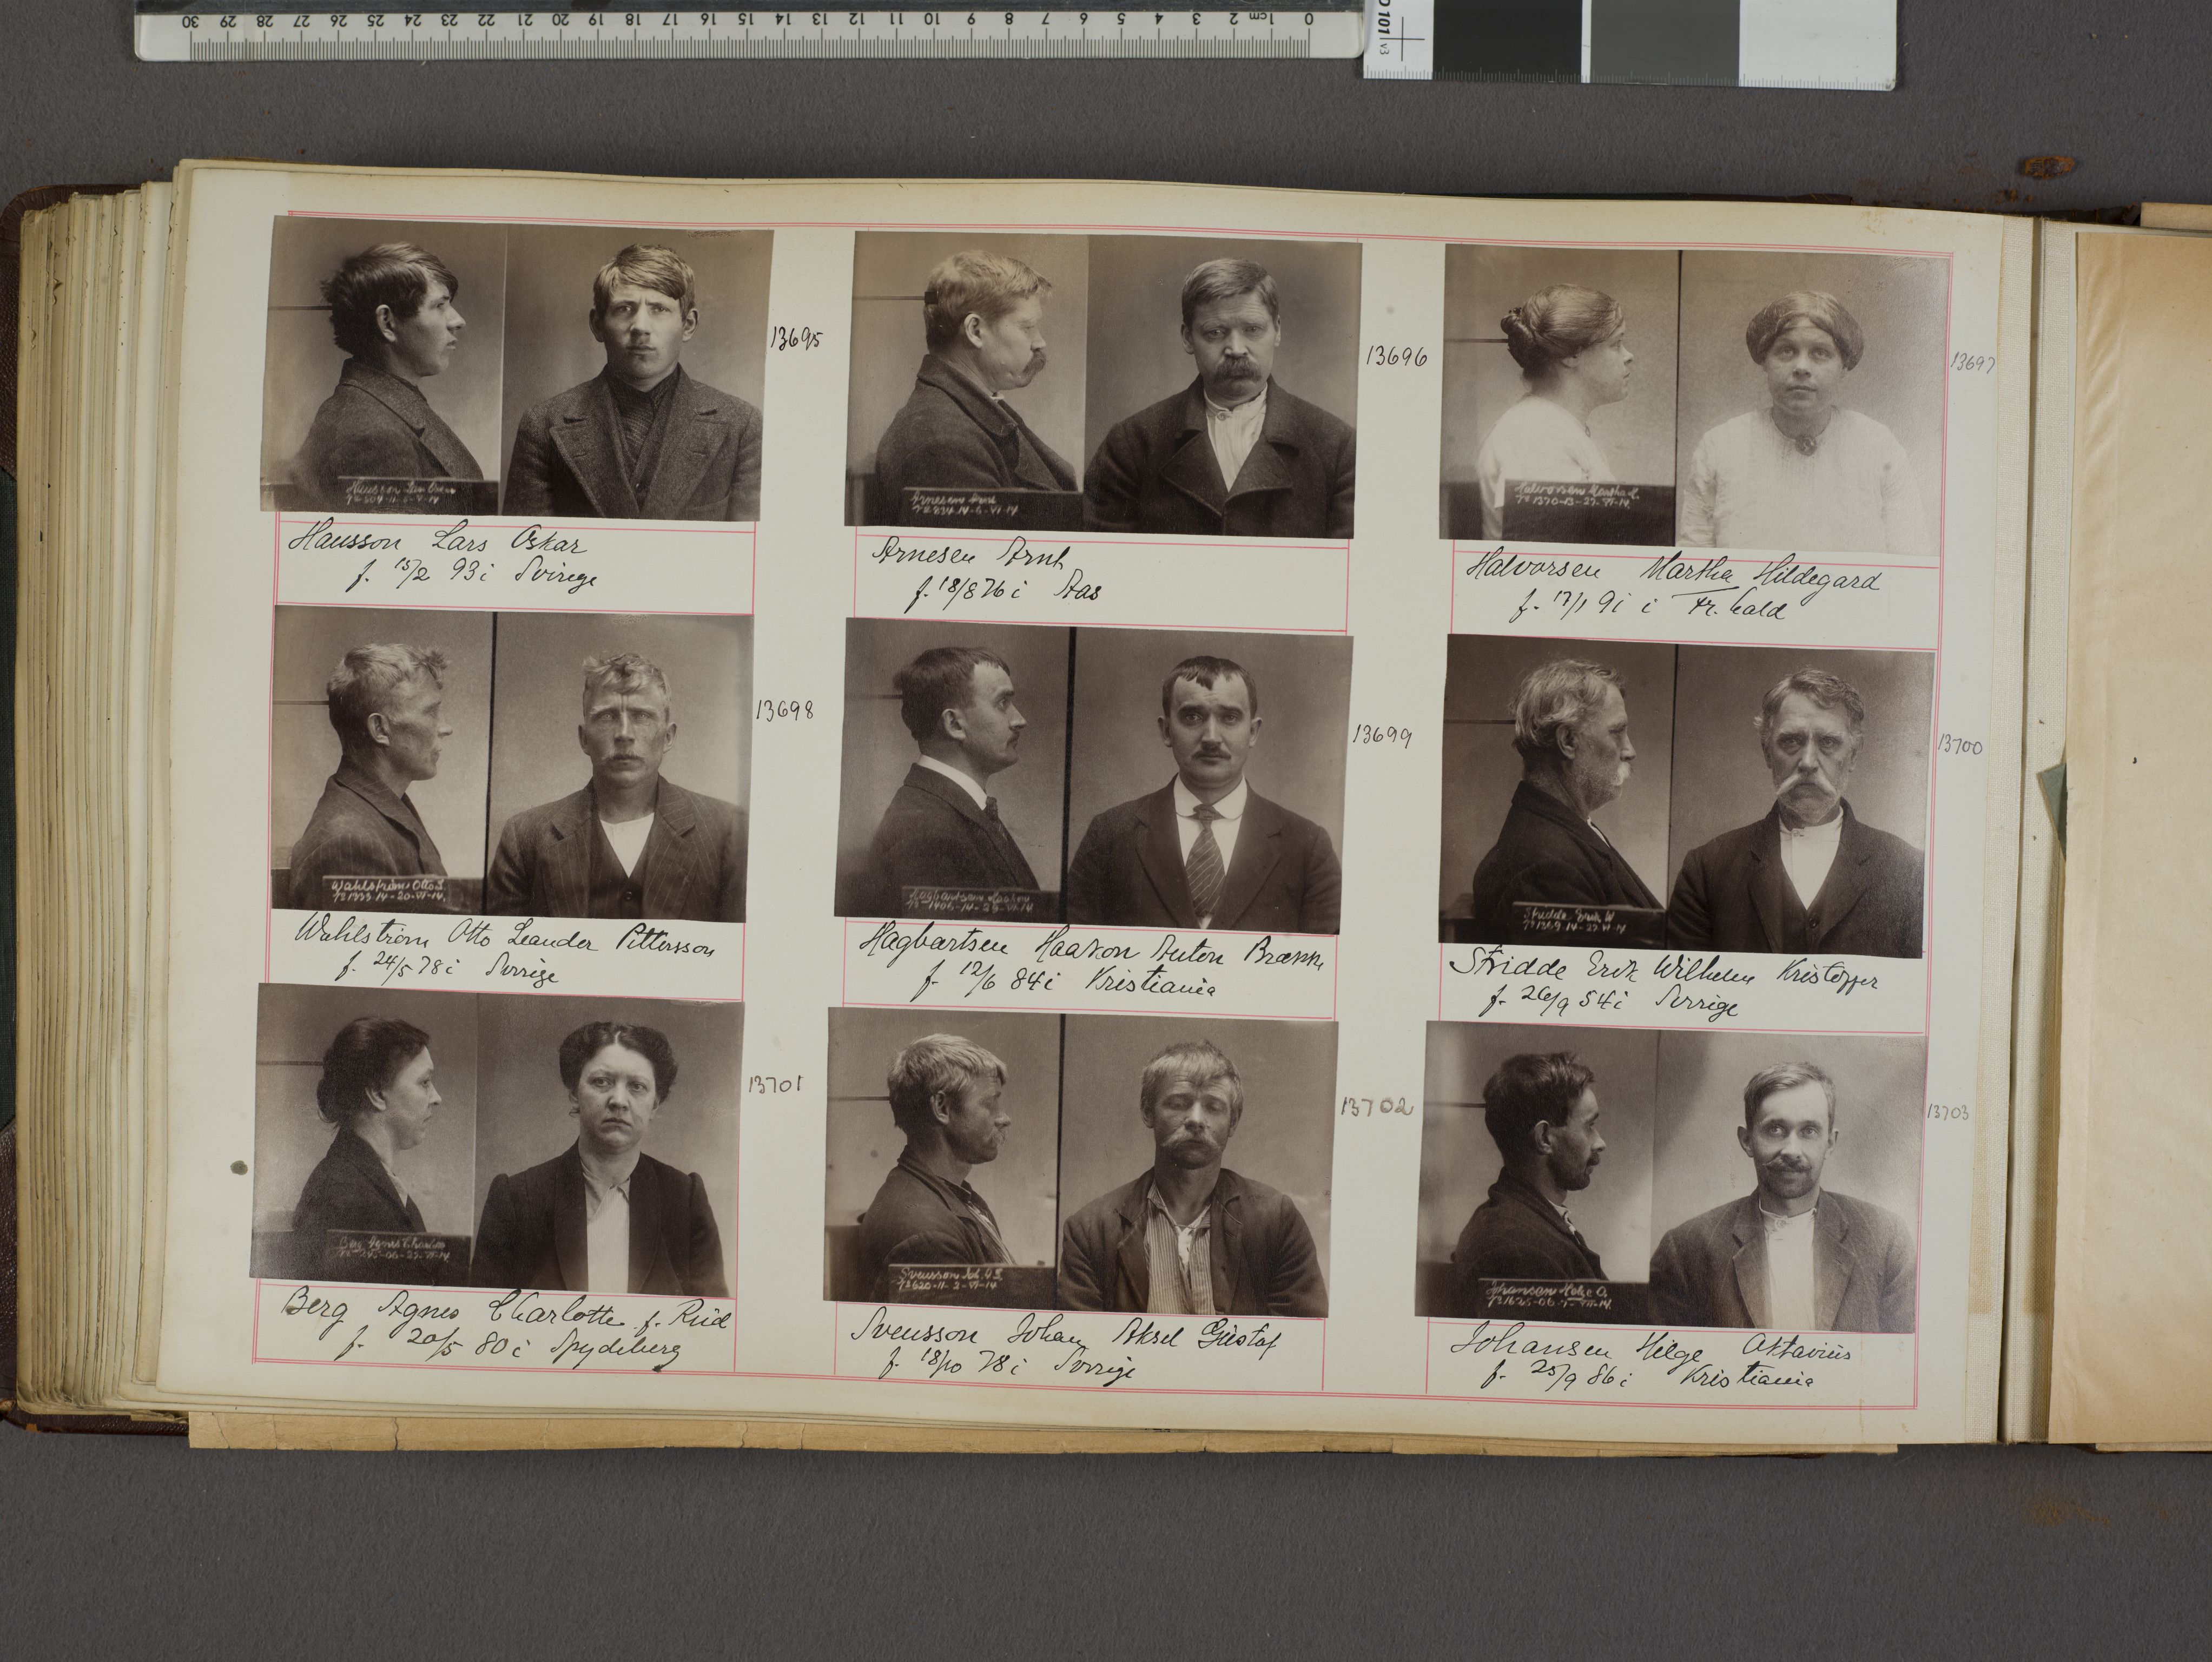 30 29 28 27 26 25 24 23 22 21 20 19 18 17 16 15 14 13 12 11 10 9 8 7 6 5 4 3 2 1cm 0
101 v3
13695
Hansson Lars Oskar
f. 15/2 93 i Sverige
13696
Arnesen Arnt
Arnesen Arnt
f. 18/8 76 i Aas
13697
Halvorsen Martha H.
Halvorsen Martha Hildegard
f. 17/1 91 i Fr.hald
13698
Wahlstrøm Otto L.
Wahlstrøm Otto Leander Pettersson
f. 24/5 78 i Sverige
13699
Hagbartsen Haakon
Hagbartsen Haakon Anton
f. 12/6 84 i Kristiania
13700
Stridde Erik W
Stridde Erik Wilhelm Kristoffer
f. 26/9 54 i Sverige
13701
Berg Agnes Charlotte
Berg Agnes Charlotte f. Rud
f. 20/5 80 i Spydeberg
13702
Svensson Joh. A. G.
Svensson Johan Aksel Gustaf
f. 18/10 78 i Sverige
13703
Johansen Helge O.
Johansen Helge Oktavius
f. 25/9 86 i Kristiania